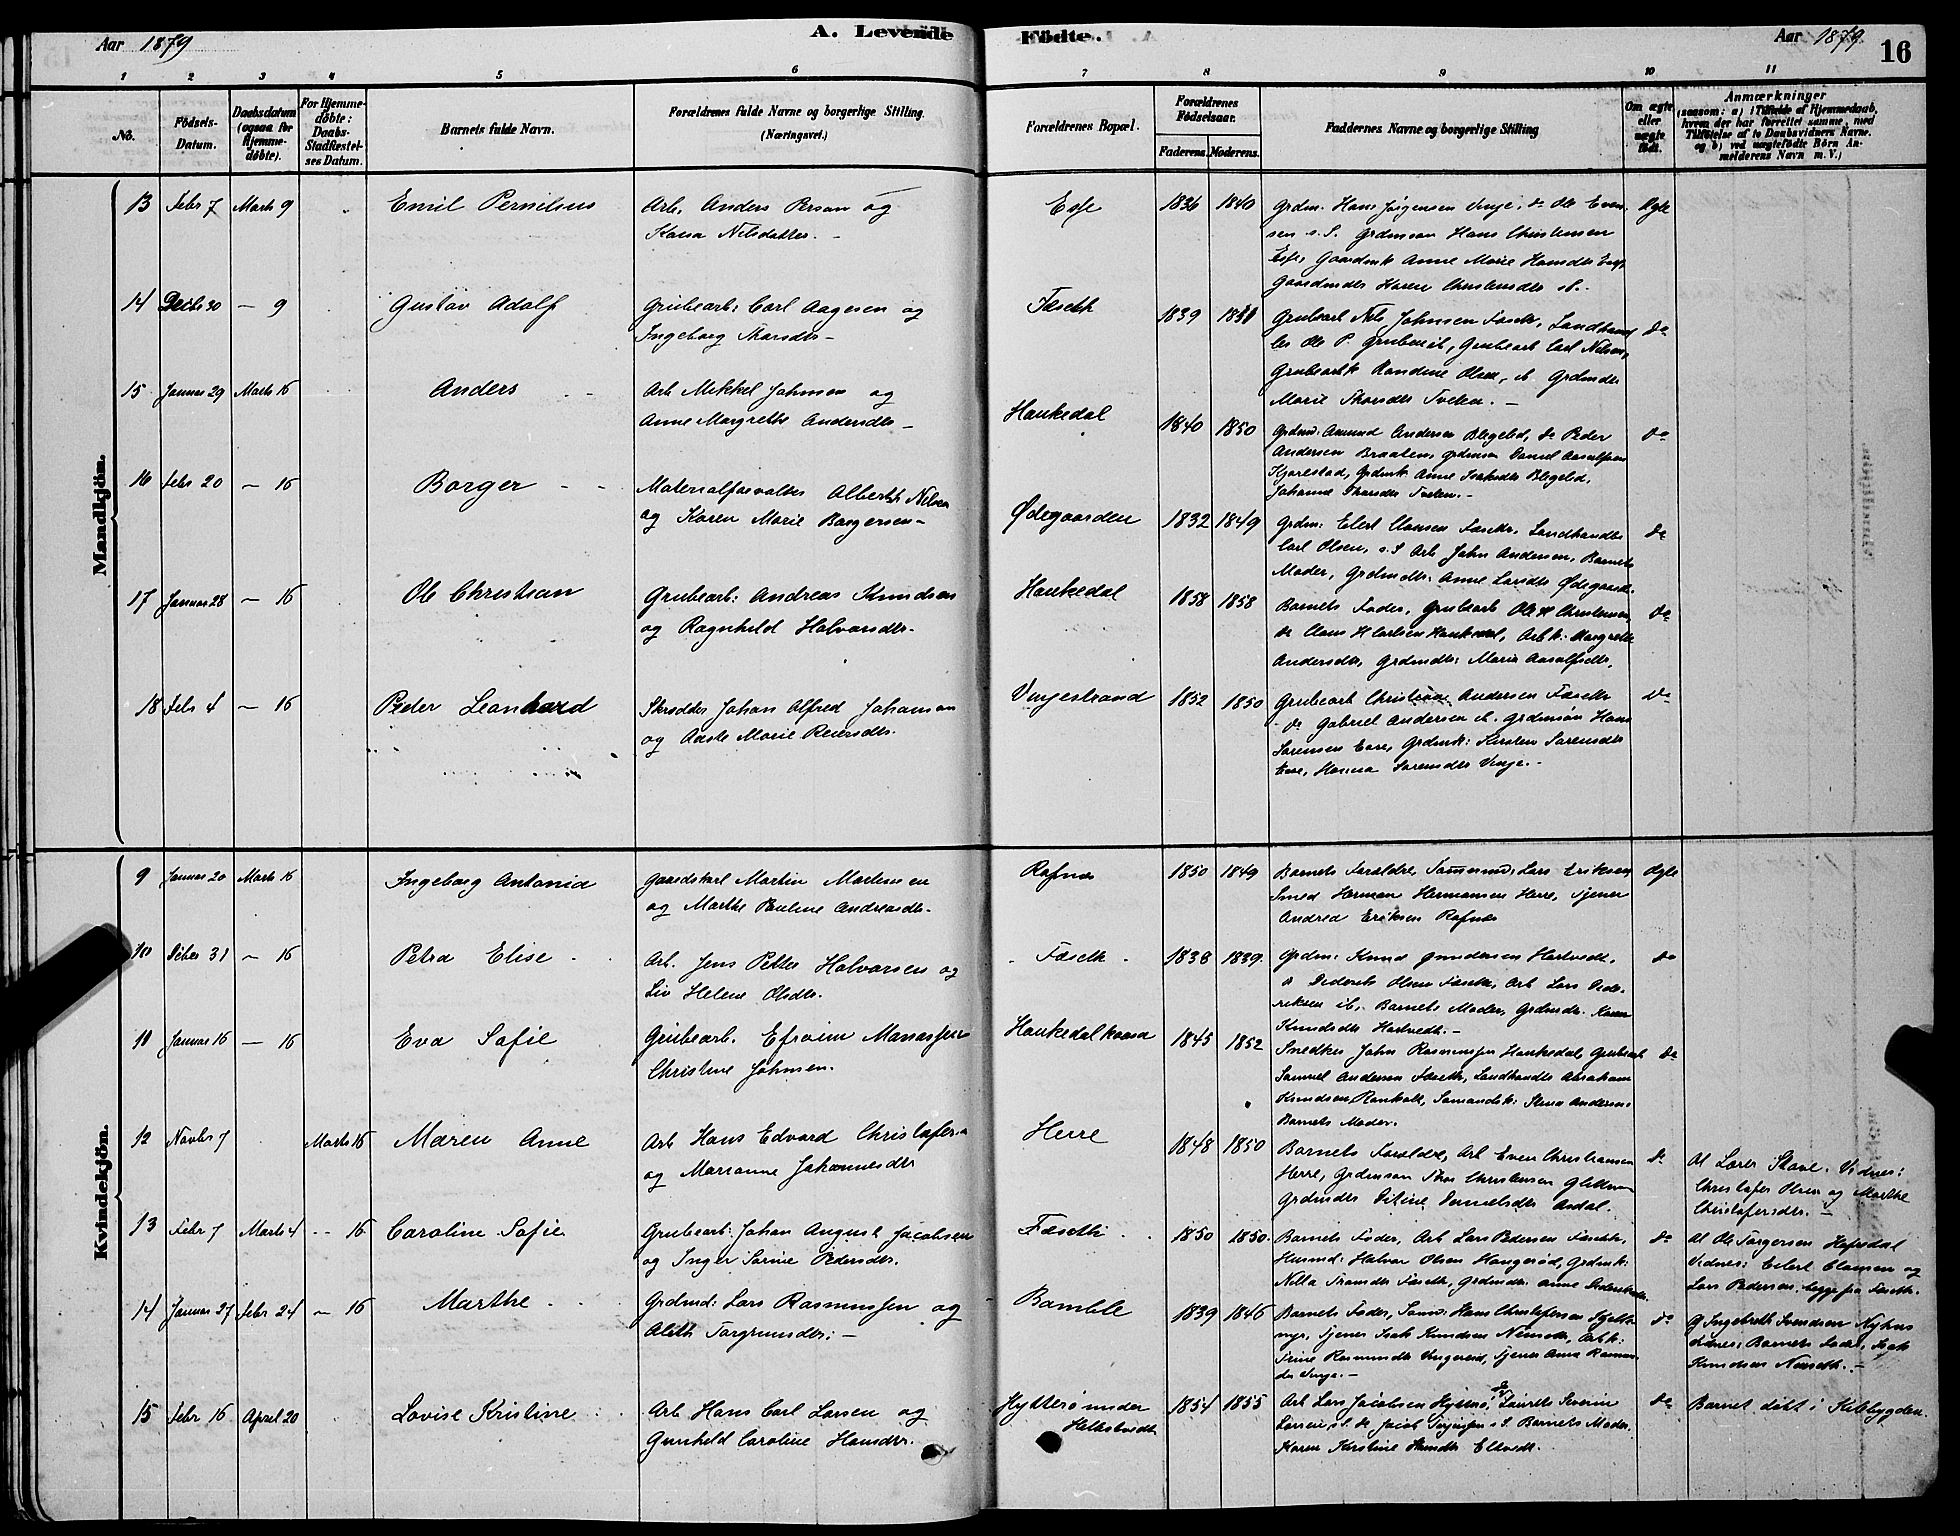 Aar 1879
A. Levende Födte.
Aar 1879
16
1 2 3 4 5 6 7 8 9 10 11
No.
Födsels-Datum.
Daabsdatum (ogsaa for Hjemme-döbte).
For Hjemme-döbte: Daabs-Stadfæstelses Datum.
Barnets fulde Navn.
Forældrenes fulde Navne og borgerlige Stilling. (Næringsvei.)
Forældrenes Bopæl.
Forældrenes Födselsaar.
Faderens. Moderens.
Faddernes Navne og borgerlige Stilling
Om ægte eller uægte födt.
Anmærkninger
(saasom: a) i Tilfælde af Hjemmedaab,
hvem der har forrettet samme, med
Tilföielse af to Daabsvidners Navne.
og b) ved uægtefödte Börn An-
melderens Navn m.V.)
Mandkjön.
13 Febr 7 Marts 9 Emil Pernilsus Arb. Anders Person og
Karen Nilsdatter. -
1836 1840 Grdm. Hans Jørgensen Vinje, do Ole Even-
sen s.S. Grdmsøn Hans Christensen
Gaardmk Anne Marie Hansdtr
Gaardmdtr Karen Christensdtr
Ægte
14 Decbr 30 - 9 Gustav Adolf Grubearb: Carl Aagesen og
Ingeborg Thorsdtr -
Fæseth 1839 Grubearb Nils Johnsen Fæseth, Landhand
ler Ole P. Grubearb Carl Nilsen,
Grubearbk Randine Olsen, Grdmdtr
Marie Thorsdtr Tveten. -
do
15 Januar 29 Marts 16 Anders Arb Mikkel Johnsen og
Anne Margrethe Andersdtr -
Haukedal 1840 1850 Grdm: Amund Andersen Blegelid, do Peder
Andersen Braaten, Grdmsøn Daniel Aasolfsen
Kjørlestad, Grdmk Anne Isaksdtr Blegelid,
Johanne Thorsdtr Tveten. -
do
16 Febr 20 - 16 Borger - - Materialforvalter Albert Nilsen
og Karen Marie Borgersen -
Ødegaarden 1832 1849 Grdm: Eilert Clausen Fæseth, Landhandler
Carl Olsen, s.S Arb John Andersen, Barnets
Moder, Grdmdtr: Anne Larsdtr Ødegaard.
do
17 Januar 28 - 16 Ole Christian Grubearb: Andreas Knudsen
og Ragnhild Halvorsdtr.
Haukedal 1858 1858 Barnets Fader, Grubearb Ole Christensen,
do Claus H Carlsen Haukedal, Arbk: Margrethe
Andersdtr, Grdmdtr: Maria Aasolfsdtr,
do
18 Febr 4 - 16 Peder Leonhard Skrædder Johan Alfred Johanson
og Aaste Marie Reiersdtr.
Vingestrand 1852 1850 Grubearb Christian Andersen Fæseth
do Gabriel Andersen ib. Grdmsøn Hans
Sørensen Grdmk: Kirsten Sørensdtr
Hanna Sørensdtr Vinje. -
do
Kvindekjön.
9 Januar 20 Marts 16 Ingeborg Antonia Gaardskarl Martin Mortensen
og Marthe Pauline Andreasdtr.
Rafnæs 1850 1849 Barnets Forældre, Tømmermd: Lars Eriksen
Smed Herman Hermansen Herre, Tjener
Andrea Eriksen Rafnæs
Ægte
10 Decbr 31 - 16 Petra Elise Arb. Jens Petter Halvorsen og
Liv Helene Olsdtr.
Fæseth 1838 1839 Grdm: Knud Gundersen Hastvedt,
Dederik Olsen Fæseth, Arb Lars Dide-
riksen ib, Barnets Moder, Grdmdtr. Karen
Knudsdtr Hastvedt. -
do
11 Januar 16 - 16 Eva Safie Grubearb. Efraim Manassesen
Christine Johnsen.
Haukedalkaasa 1845 1852 Snedker John Rasmussen Haukedal, Grubearb
Samuel Andersen Fæseth, Landhandler Abraham
Knudsen, Rønholt, Sømandsk: Stina Andersen,
Barnets Moder.
do
12 Novbr 7 Marts 16 Maren Anne Arb Hans Edvard Christofersen
og Marianne Johannesdtr
Herre 1848 1850 Barnets Forældre, Arb Even Christiansen
Herre, Grdmsøn Thor Christensen
Grdmdtr Ditine Danielsdtr
do Af Lærer Stave. Vidner:
Christofer Olsen og Marthe
Christofersdtr. -
13 Febr 7 Marts 4 - 16 Caroline Safie Grubearb: Johan August Jacobsen
og Inger Sørine Pedersdtr.
Fæseth 1850 1850 Barnets Fader, Arb Lars Pedersen Fæseth,
Husmd: Halvor Olsen Haugerød, Grdmk:
Nilla Fæseth, Grdmdtr: Anne
do Af Ole Torgersen Hafsdal
Vidner: Eilert Clausen og
Lars Pedersen, begge fra Fæseth.
14 Januar 27 Febr 24 - 16 Marthe Grdmd: Lars Rasmussen og
Aleth Torgrimsdtr: -
Bamble 1839 1846 Barnets Fader, Sømd: Hans Christofersen
Tjener Isak Knudsen Arbk:
Trine Rasmusdtr Tjener Anna Rasmus-
dtr Vinje. -
do Af Ingebreth Svendsen Nyhus
Vidner: Barnets Fader, Isak
Knudsen -
15 Febr 16 April 20 Lovise Kristine Arb Hans Carl Larsen og
Gunhild Caroline Hansdtr.
Hytterø under 1854 1855 Arb Lars Jacobsen Hytterø, Laurits Severin
Larsen, s.S. do Jacob s.S. Barnets Moder,
Karen Kirstine
do Barnet døbt i Skibbygden.